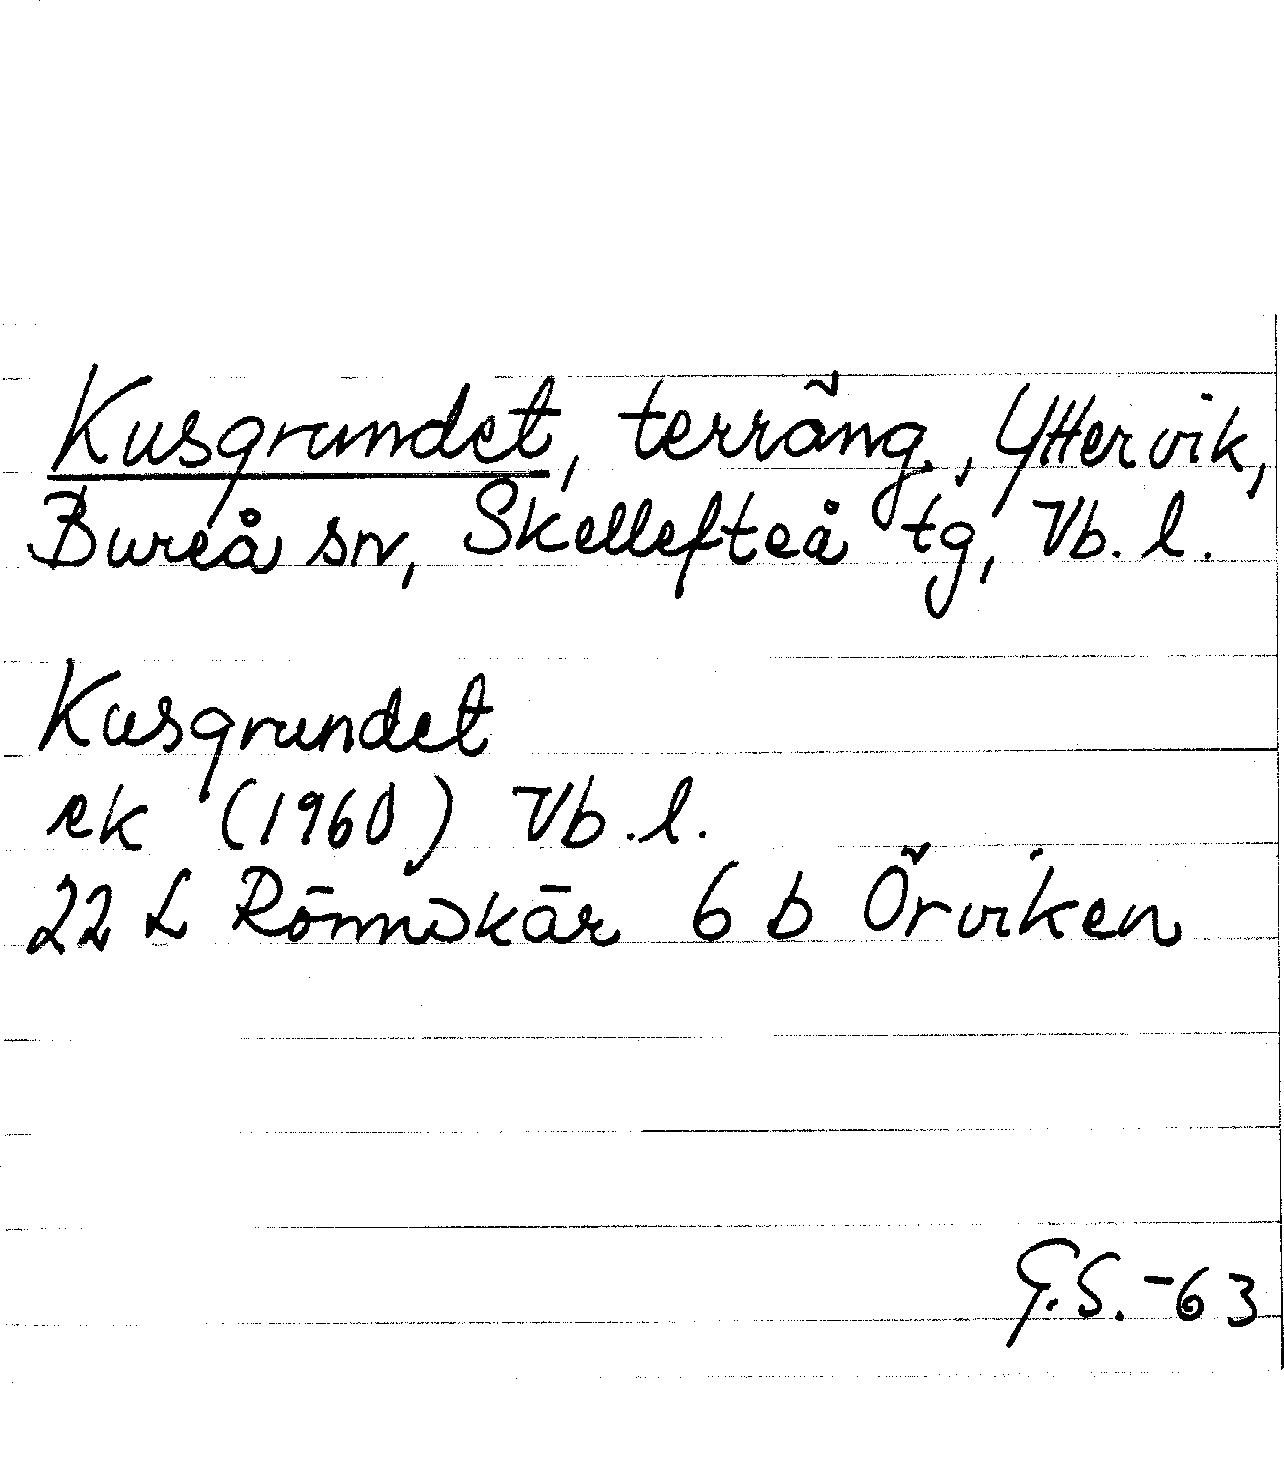 Kusgrundet, terräng, Yttervik,
Bureå sn, Skellefteå tg, Vb. l.
Kusgrundet
ek (1960) Vb. l.
22 L Rönnskär 6 b Örviken
G.S. -63